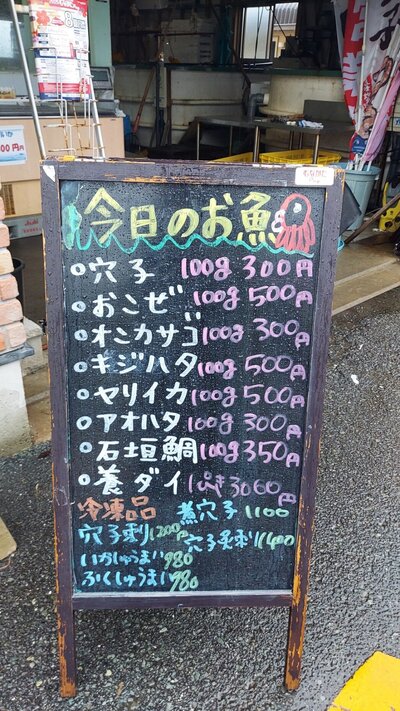 今日のお魚
穴子 100g 300円
おこぜ 100g 500円
オニカサゴ 100g 300円
キジハタ 100g 500円
ヤリイカ 100g 500円
アオハタ 100g 300円
石垣鯛 100g 350円
養ダイ 1ぴき 3060円
冷凍品 煮穴子 1100
いかしゅうまい 980
ふくしゅうまい 980